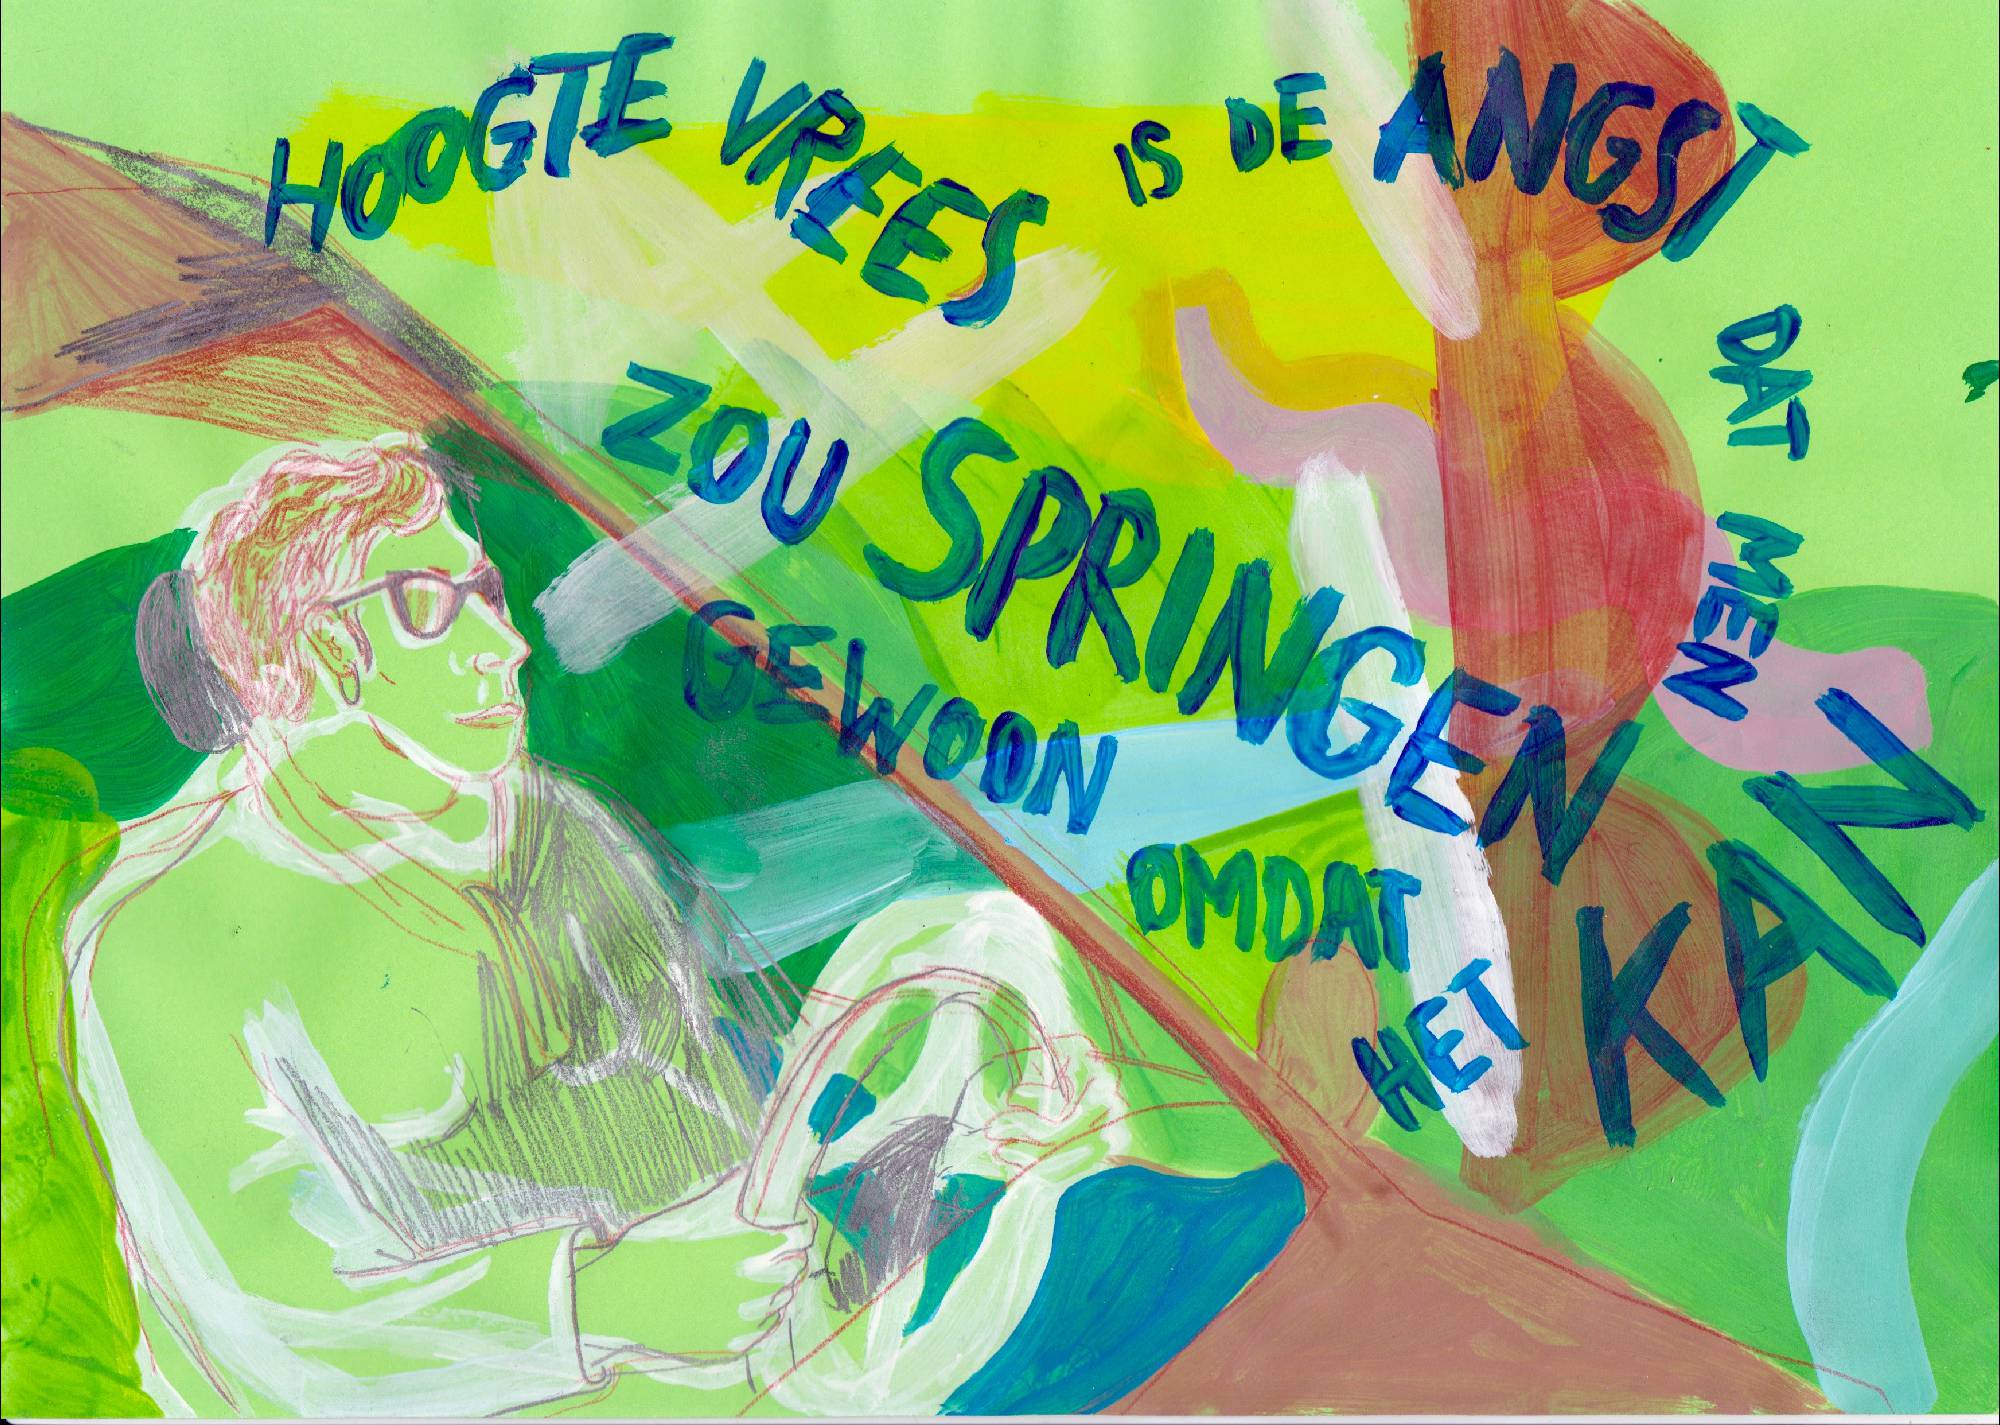 HOOGTE VREES IS DE ANGST
DAT MEN
ZOU SPRINGEN
GEWOON
OMDAT
HET
KAN